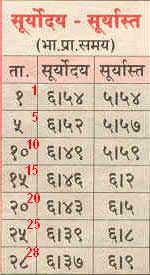 सूर्योदय - सूर्यास्त
(भा.प्रा.समय)
ता. सूर्योदय सूर्यास्त
१ 1 ६।५४ ५।५४
५ 5 ६।५२ ५।५७
१० 10 ६।४९ ५।५९
१५ 15 ६।४६ ६।२
२० 20 ६।४३ ६।५
२५ 25 ६।३९ ६।८
२८ 28 ६।३७ ६।९